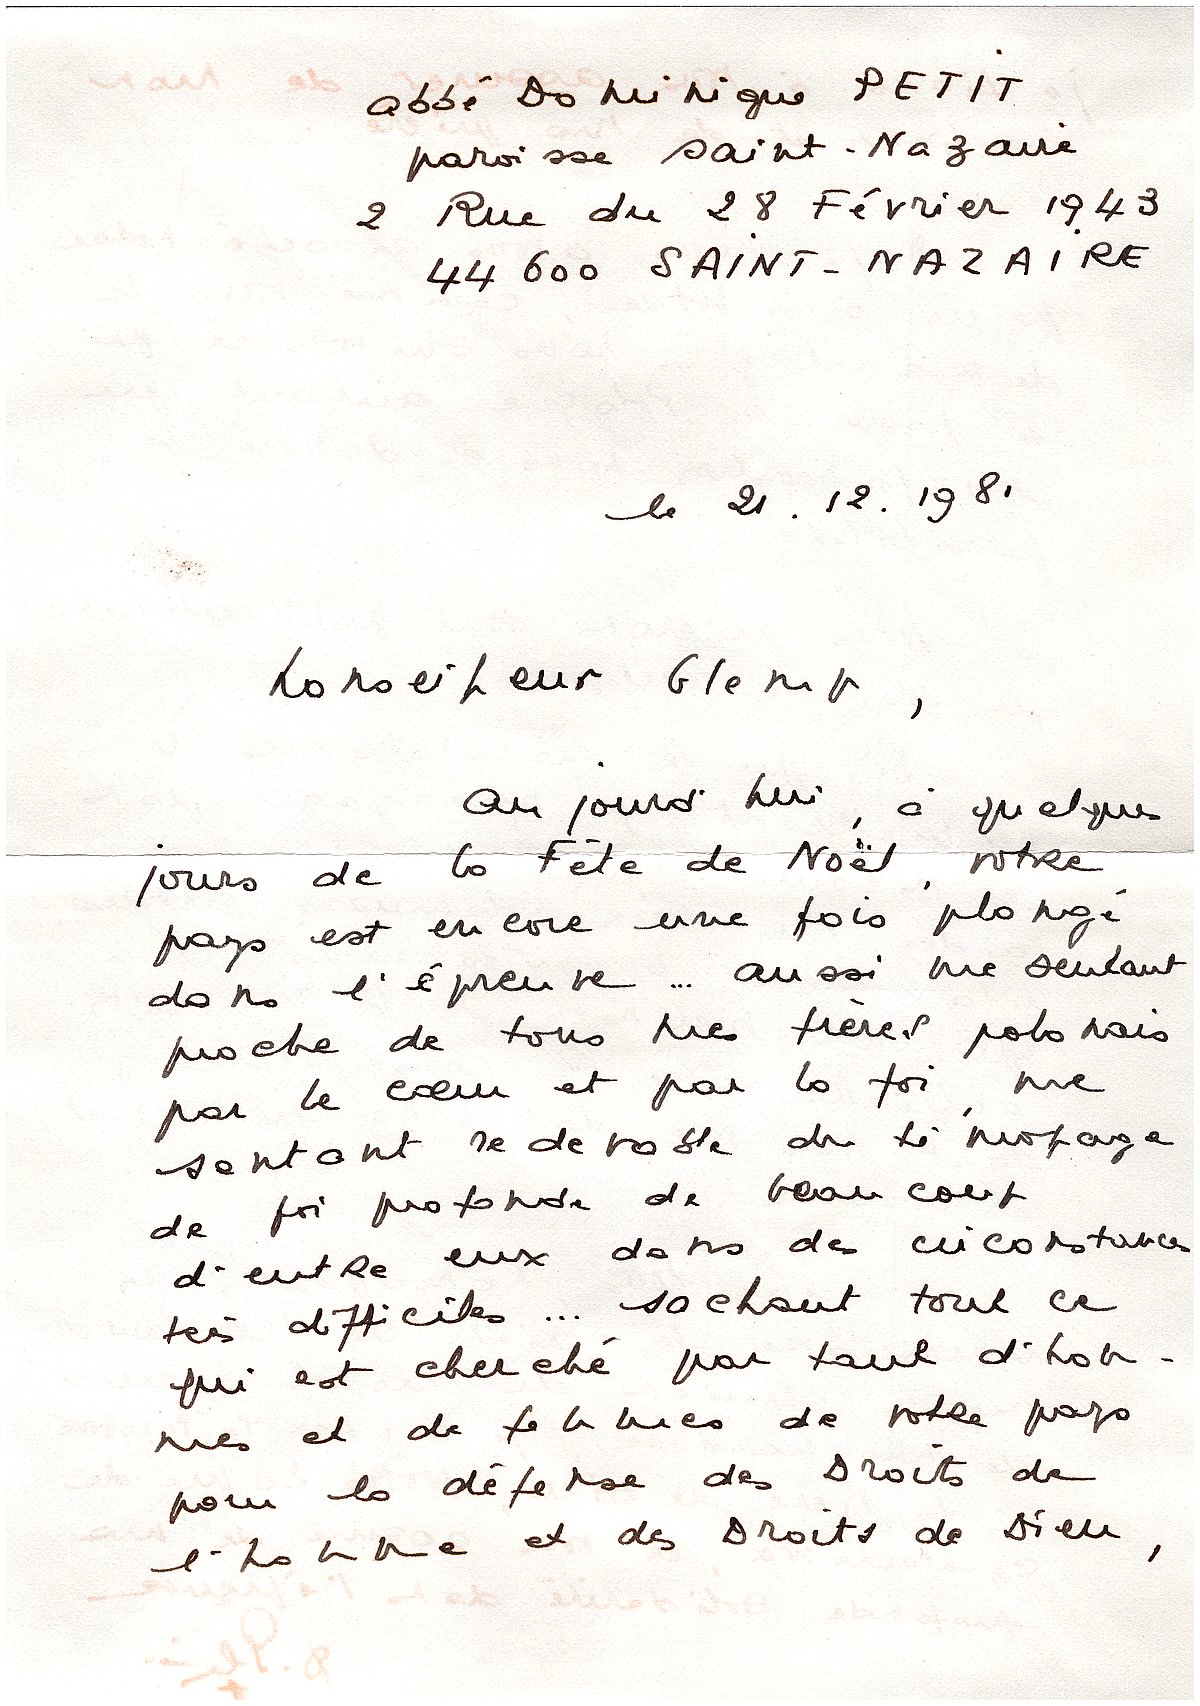 abbé Dominique PETIT
paroisse saint-Nazaire
2 Rue du 28 Février 1943
44600 SAINT-NAZAIRE
le 21.12.1981
Monseigneur Glemp,
Aujourd'hui, à quelques
jours de la Fête de Noël, votre
pays est encore une fois plongé
dans l'épreuve... aussi me sentant
proche de tous mes frères polonais
par le cœur et par la foi, me
sentant redevable du témoignage
de foi profonde de beaucoup
d'entre eux dans des circonstances
très difficiles... sachant tout ce
qui est cherché par tant d'hom-
mes et de femmes de votre pays
pour la défense des Droits de
l'homme et des Droits de Dieu,